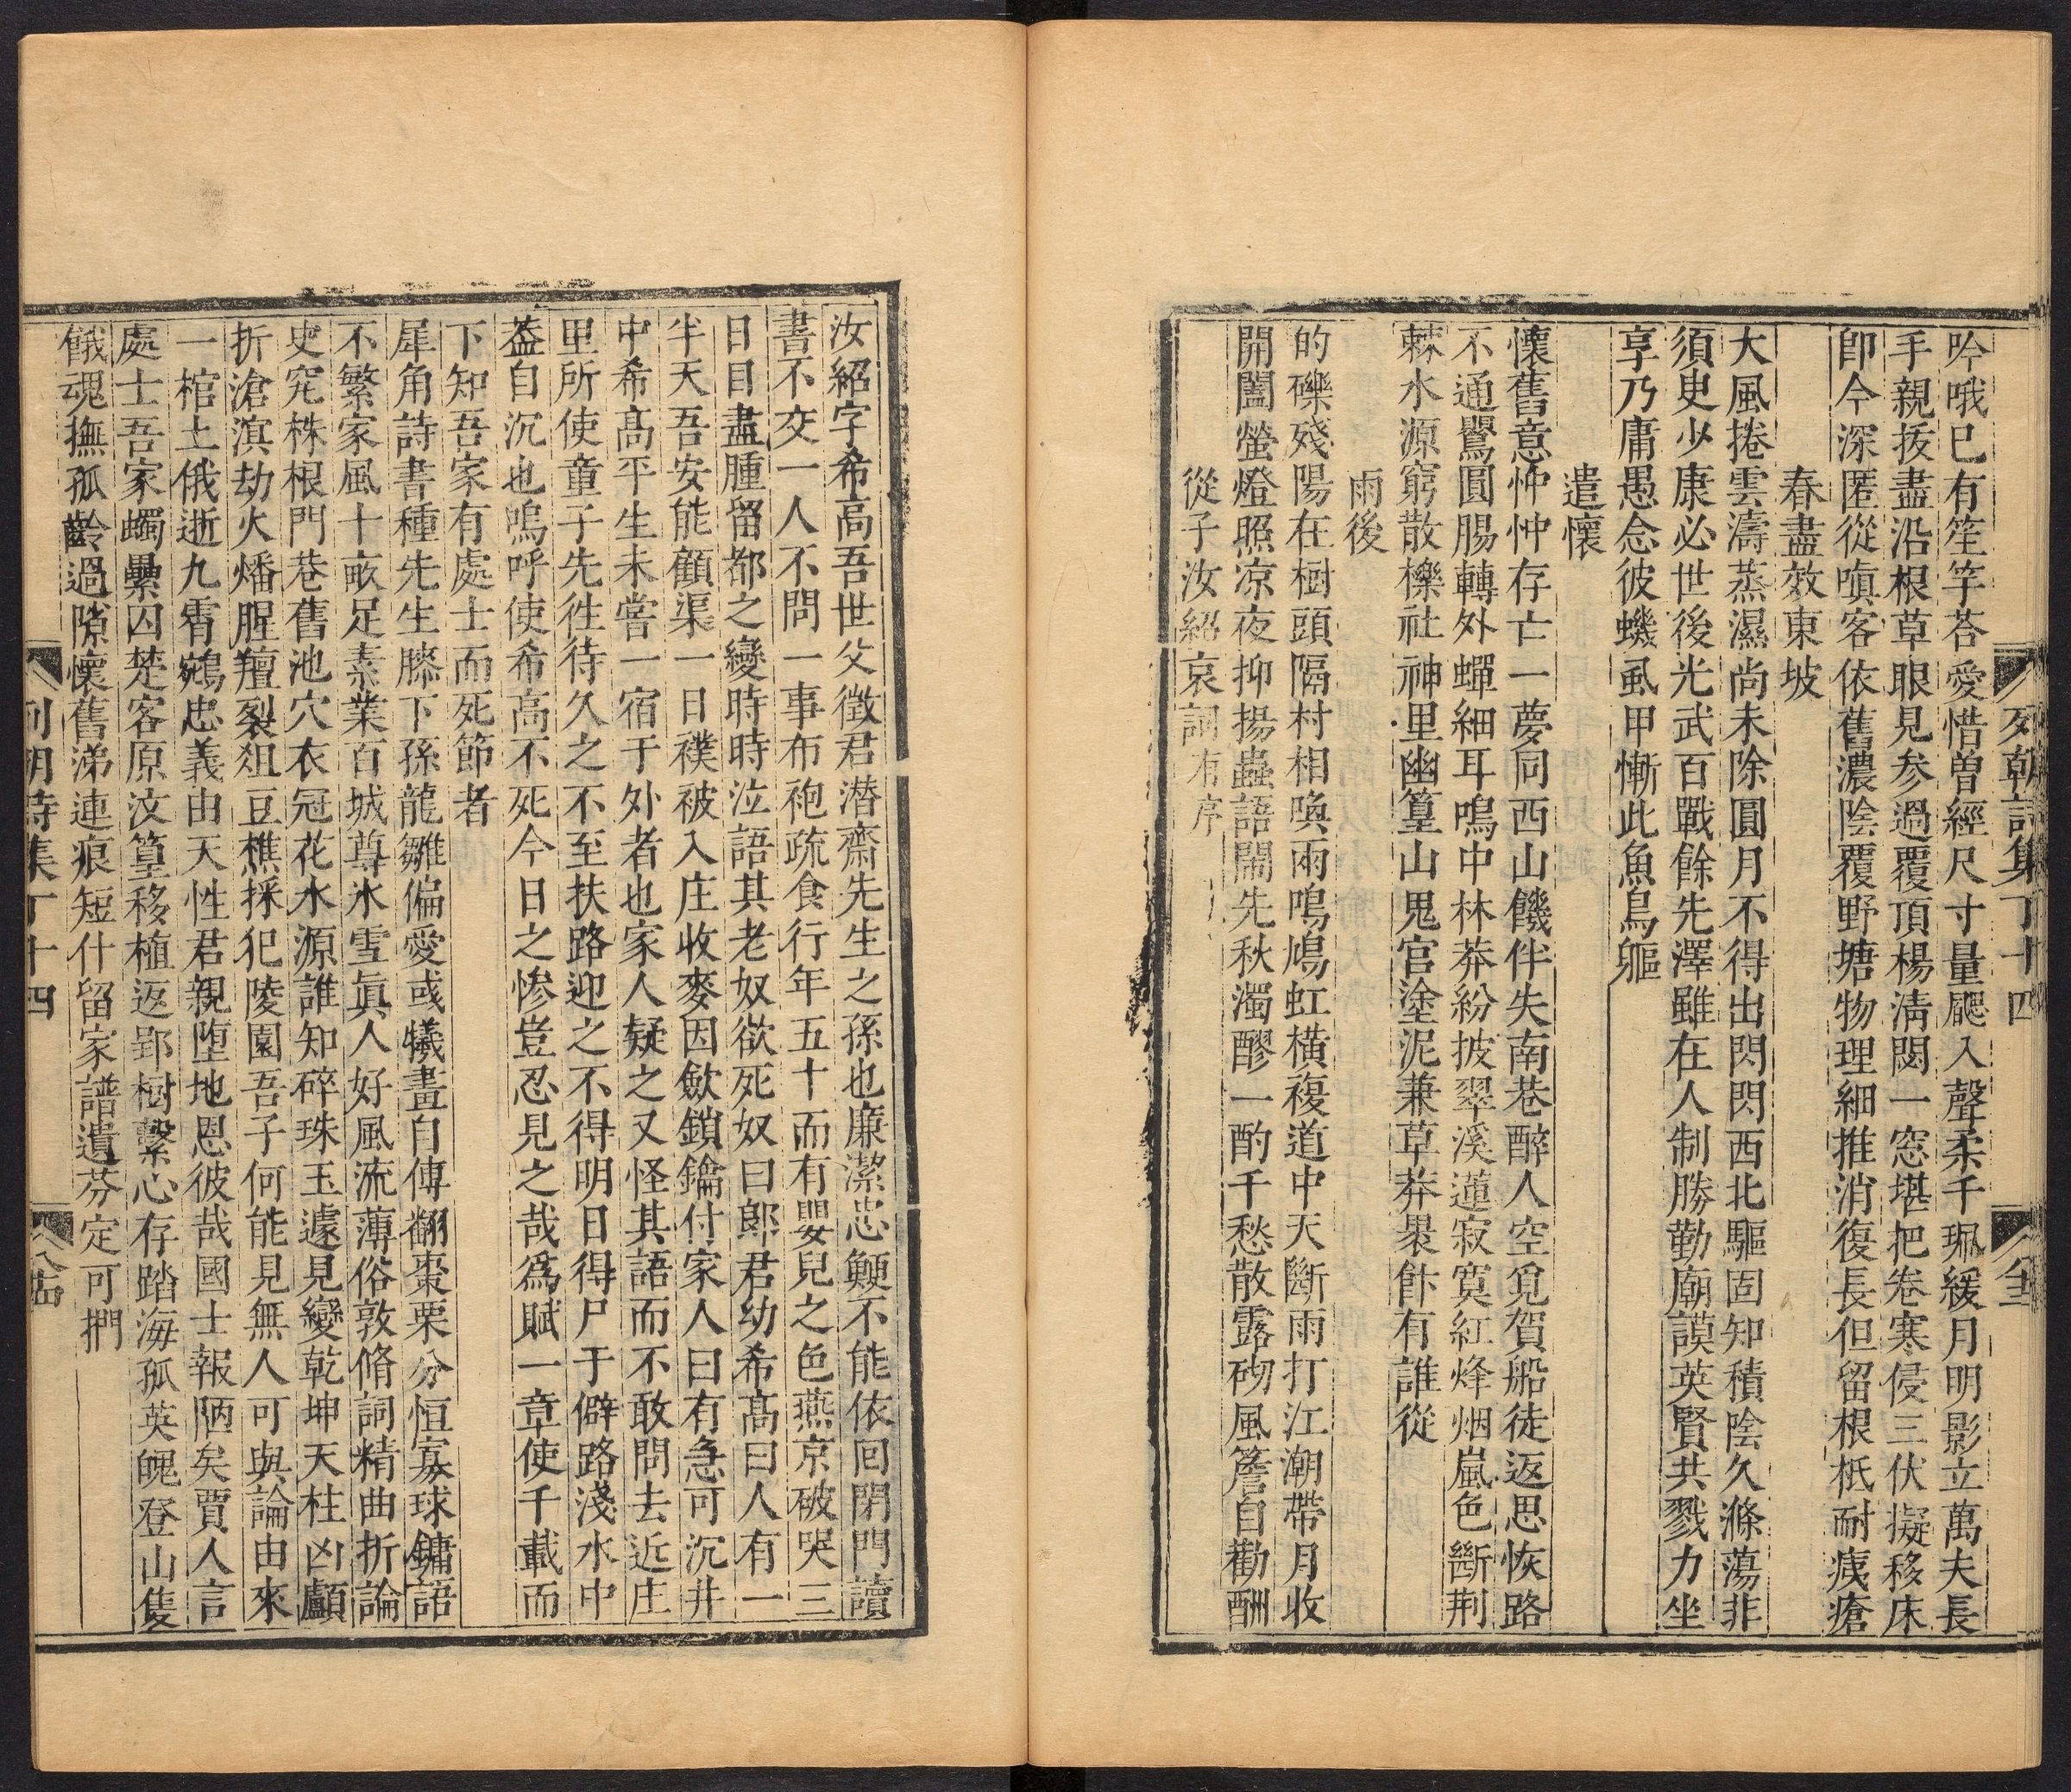 列朝詩集丁十四
吟哦已有笙竽荅愛惜曾經尺寸量颸入聲柔千珮緩月明影立萬夫長
手親拔盡沿根草眼見參過覆頂楊淸閟一窓堪把卷寒侵三伏擬移床
卽今深匿從嗔客依舊濃陰覆野塘物理細推消復長但留根柢耐痍瘡
春盡效東坡
大風捲雲濤蒸濕尚未除圓月不得出閃閃西北驅固知積陰久滌蕩非
須臾少康必世後光武百戰餘先澤雖在人制勝勤廟謨英賢共戮力坐
享乃庸愚念彼蟣虱甲慚此魚鳥軀
遣懷
懷舊意忡忡存亡一夢同西山饑伴失南巷醉人空覓賀船徒返思恢路
不通鸎圓腸轉外蟬細耳鳴中林莽紛披翠溪蓮寂寞紅烽烟嵐色斷荆
棘水源窮散櫟社神里幽篁山鬼官塗泥兼草莽暴餘有誰從
雨後
的礫殘陽在樹頭隔村相喚雨鳴鳩虹橫複道中天斷雨打江潮帶月收
開闔螢燈照凉夜抑揚蟲語鬧先秋濁醪一酌千愁散露砌風簷自勸酬
從子汝紹哀詞有序
汝紹字希高吾世父徵君潛齋先生之孫也廉潔忠鯁不能依囘閉門讀
書不交一人不問一事布袍疏食行年五十而有嬰兒之色燕京破哭三
日目盡腫留都之變時時泣語其老奴欲死奴曰郞君幼希高曰人有一
半天吾安能顧渠一日襆被入庄收麥因歛鎖鑰付家人曰有急可沉井
中希高平生未嘗一宿于外者也家人疑之又怪其語而不敢問去近庄
里所使童子先徃待久之不至扶路迎之不得明日得尸于僻路淺水中
葢自沉也嗚呼使希高不死今日之慘豈忍見之哉爲賦一章使千載而
下知吾家有處士而死節者
犀角詩書種先生膝下孫龍雛偏愛或犧畫自傳翻棗栗分恒寡球鏞語
不繁家風十畝足素業百城尊氷雪眞人好風流薄俗敦脩詞精曲折論
史究株根門巷舊池穴衣冠花水源誰知碎珠玉遽見變乾坤天柱凶顱
折滄溟劫火燔腥羶裂俎豆樵採犯陵園吾子何能見無人可與論由來
一棺土俄逝九霄鵷忠義由天性君親墮地恩彼哉國士報陋矣賈人言
處士吾家蠋纍囚楚客原汶篁移植返郢樹繫心存踏海孤英魄登山隻
餓魂撫孤齡過隙懷舊涕連痕短什留家譜遺芬定可捫
列朝詩集丁十四